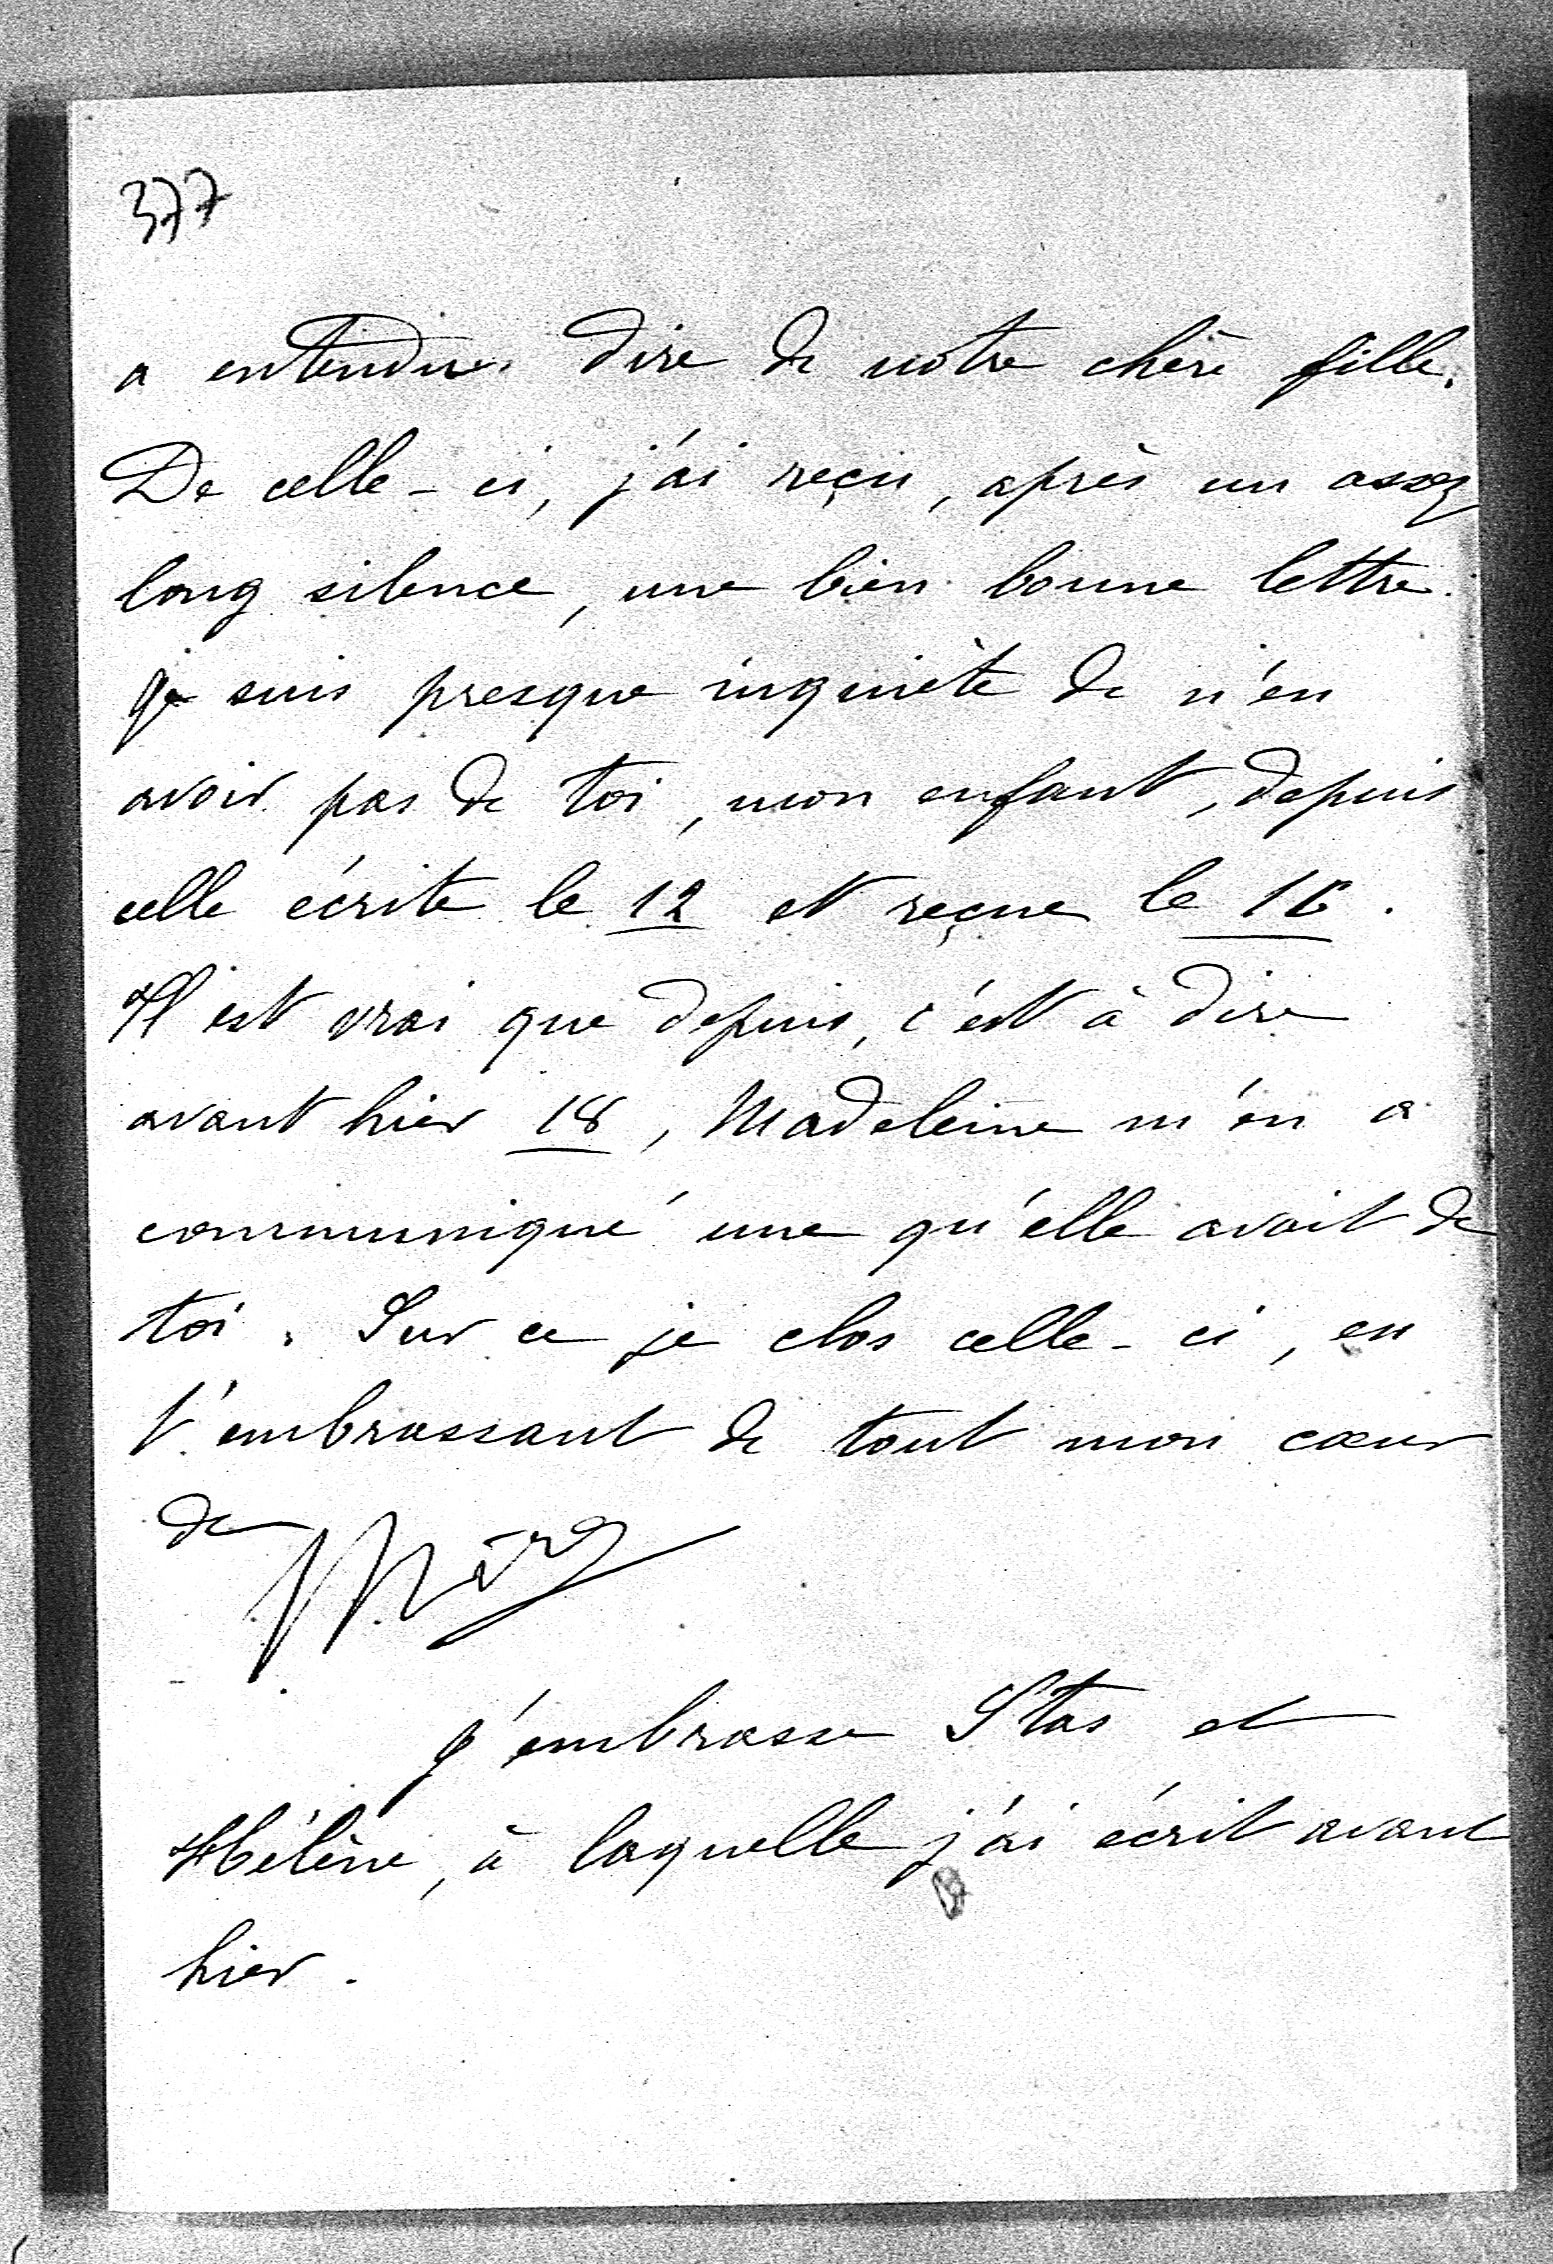 377
a entendu dire de notre chère fille.
De celle-ci, j'ai reçu, après un assez
long silence, une bien bonne lettre.
Je suis presque inquiète de n'en
avoir pas de toi, mon enfant, depuis
celle écrite le 12 et reçue le 16.
Il est vrai que depuis, c'est à dire
avant hier 18, Madeleine m'en a
communiqué une qu'elle avait de
toi. Sur ce je clos celle-ci, en
t'embrassant de tout mon cœur
de
Mère
J'embrasse Stas et
Hélène, à laquelle j'ai écrit avant
hier.